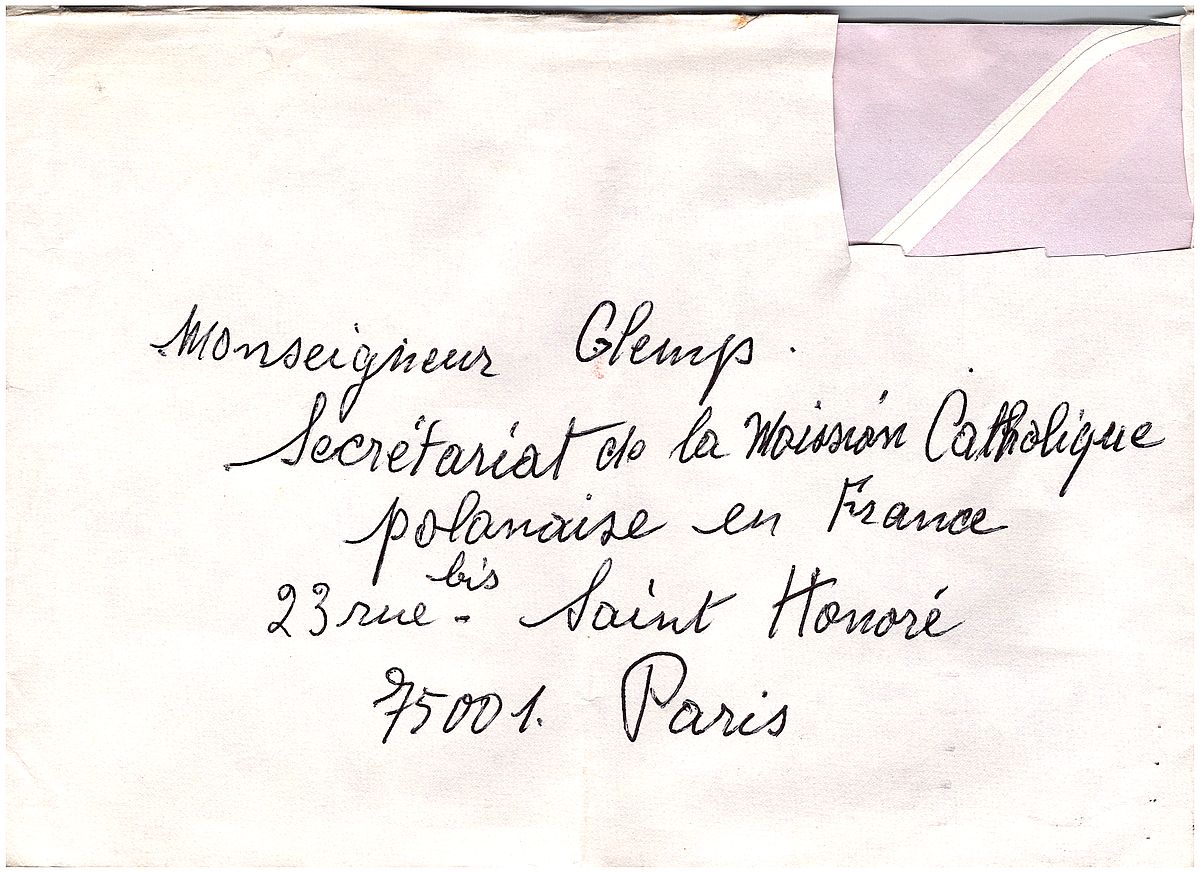 Monseigneur Glemp.
Secrétariat de la Moission Catholique
polanaise en France
23 rue bis Saint Honoré
75001. Paris